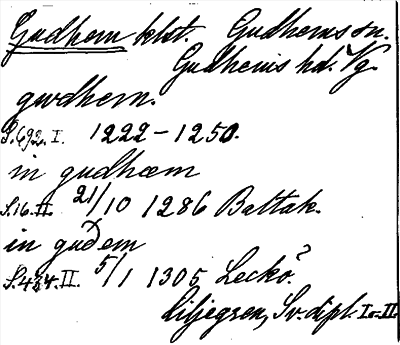 Gudhem klst. Gudhems sn.
Gudhems hd. Vg.
gwdhem.
S. 692. I. 1222–1250.
in gudhæm
S. 16. II. 21/10 1286 Battak.
in guđem
S. 424. II. 5/1 1305 Leckö?
Liljegren, Sv. dipl. I–II